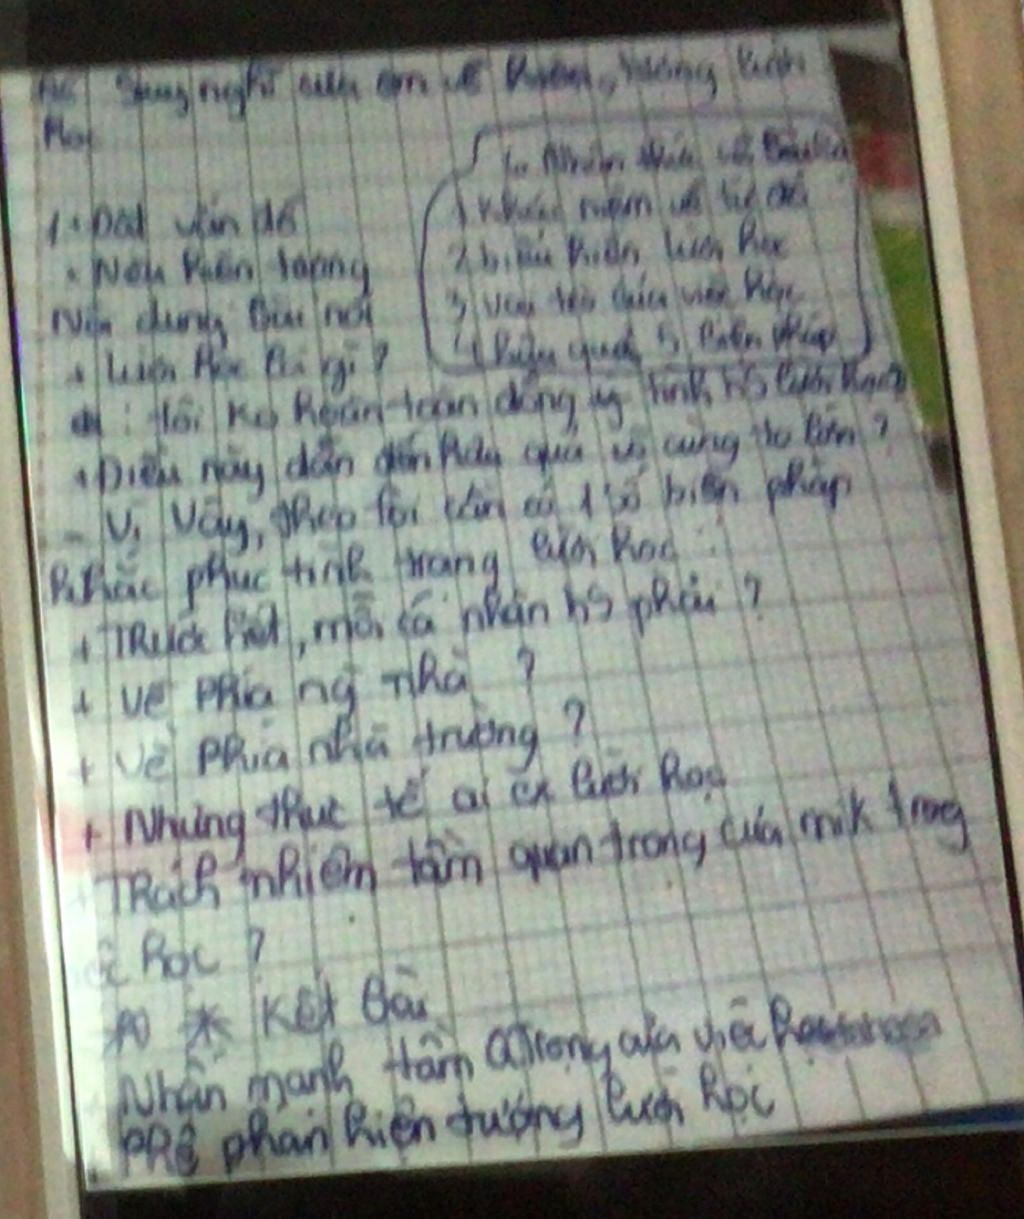 Suy nghĩ của em về hiện tượng lười
học
1. Đặt vấn đề
. Nêu hiện tượng
Nội dung bài nói
+ Lười học là gì?
: tôi ko hoàn toàn đồng ý tình hs lười học
+ Điều này dẫn đến hậu quả vô cùng to lớn?
- Vì vậy, theo tôi cần có 1 số biện pháp
khắc phục tình trạng lười học:
+ Trước hết, mỗi cá nhân hs phải?
+ Về phía ng nhà?
+ Về phía nhà trường?
+ Nhưng thực tế lười học
Trách nhiệm tầm quan trọng của mik trog
học?
* Kết bài
Nhấn mạnh tầm qtrọng của việc
phê phán hiện tượng lười học
1. Nhận thức về
1, Khái niệm về
2, biểu hiện lười học
3, vai trò của việc học
4, hậu quả 5, biện pháp